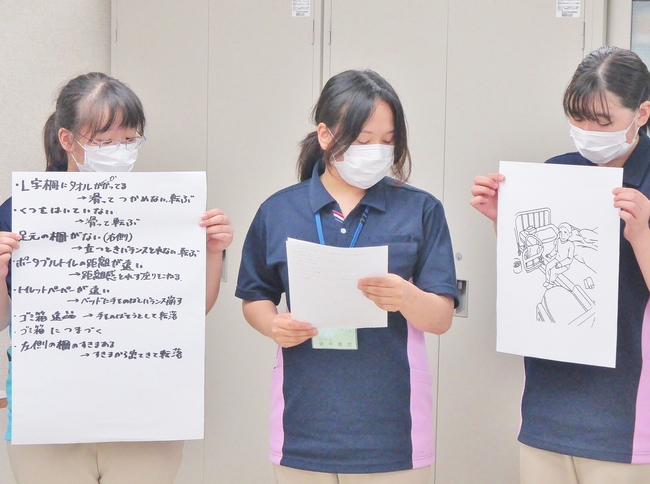 ・L字柵にタオルがかかってる
→滑ってつかめない、転ぶ
・くつをはいていない
→滑って転ぶ
・足元の柵がない(右側)
→立つときにバランスとれない、転ぶ
・ポータブルトイレの距離が遠い
→距離感とれず座りそこねる
・トイレットペーパーが遠い
→ベッドに手をのばすとバランス崩す
・ゴミ箱遠い →手をのばそうとして転落
・ゴミ箱につまづく
・左側の柵のすきまある
→すきまから出てきて転落